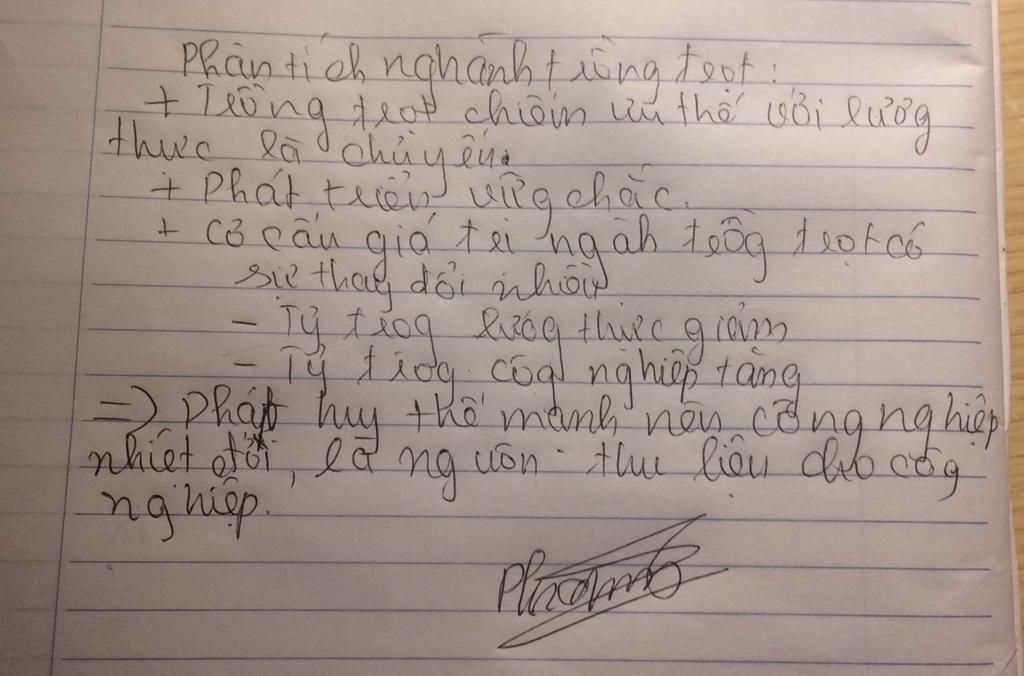 Phân tích nghành trồng trọt:
+ Trồng trọt chiếm ưu thế với lương
thực là chủ yếu.
+ Phát triển vữg chắc.
+ Cơ cấu giá trị ngàh trồg trọt có
sự thay đổi nhiều
- Tỷ trọg lươg thực giảm
- Tỷ trọg côg nghiệp tăng
=> Phát huy thế mạnh nền công nghiệp
nhiệt đới, là nguồn thu liệu cho côg
nghiệp.